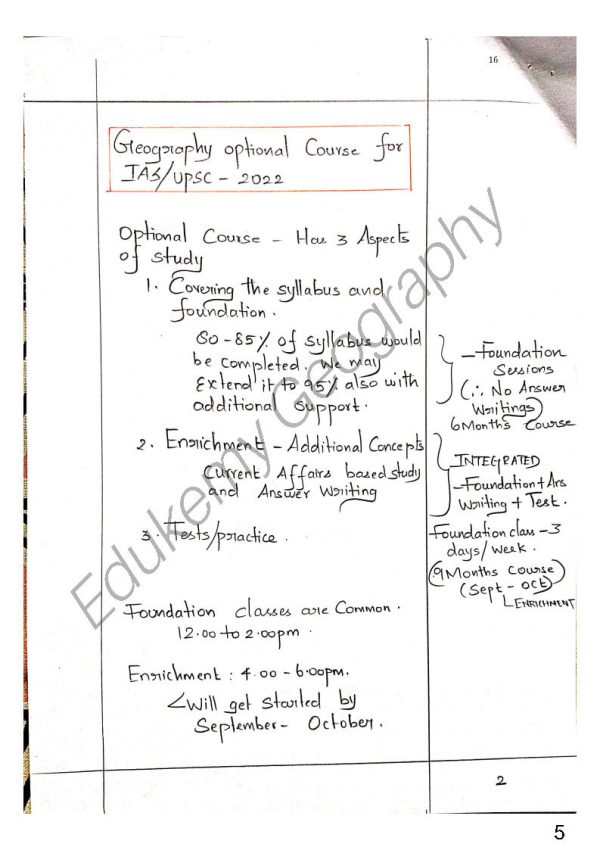 16
Geography optional Course for
IAS/UPSC - 2022
Optional Course - Has 3 Aspects
of study
1. Covering the syllabus and
foundation.
80-85% of syllabus would
be completed. We may
Extend it to 95% also with
additional support.
- Foundation
Sessions
(∴ No Answer
Writings)
6 Months Course
2. Enrichment - Additional Concepts
Current Affairs based study
and Answer Writing
INTEGRATED
- Foundation + Ans
Writing + Test.
3. Tests/practice.
Foundation class - 3
days/week.
(9 Months Course)
(Sept - oct)
ENRICHMENT
Foundation classes are Common.
12.00 to 2.00pm.
Enrichment : 4.00 - 6.00pm.
Will get started by
September - October.
2
5
Edukemy Geography